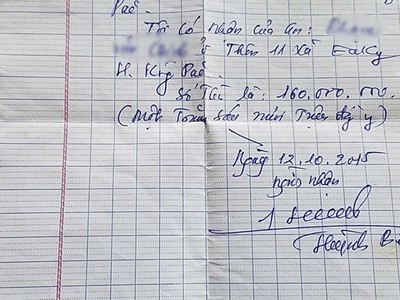 Pắc.
Tôi có nhận của an:
ở Thôn 11 Xã EaKly
H. Krông Pắc.
Số Tiền là: 160.000.000.
(Một Trăm Sáu mươi Triệu
Ngày 12.10.2015
người nhận